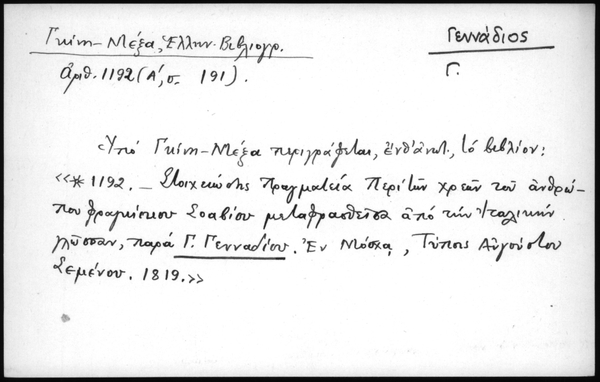 Γκίνη-Μέξα, Ἑλλην. Βιβλιογρ.
Γεννάδιος
ἀριθ. 1192 (Α', σ. 191).
Γ.
Ὑπό Γκίνη-Μέξα περιγράφεται, ἐνθ' ἀνωτ., τό βιβλίον:
«*1192. _ Στοιχειώδης Πραγματεία Περί τῶν χρεῶν τοῦ ἀνθρώ-
που Φραγκίσκου Σοαβίου μεταφρασθεῖσα ἀπό τήν Ἰταλικήν
γλῶσσαν, παρά Γ. Γενναδίου. Ἐν Μόσχᾳ, Τύποις Αὐγούστου
Σεμένου. 1819.»